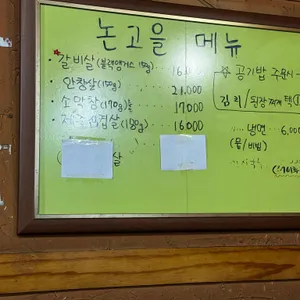 논고을 메뉴
* 갈비살(블랙앵거스 150g) 16,000
· 안창살(150g) 21,000
· 소막창(170g) 17000
살(180g) 16000
살
공기밥 주문시
김치/된장찌개 택①
냉면 6,000
(물/비빔)